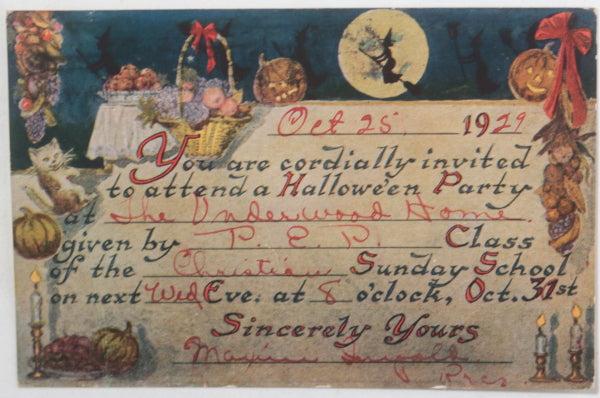 Oct 25, 1929
You are cordially invited
to attend a Hallowe'en Party
at The Underwood Home.
given by P. E. P. Class
of the Christian Sunday School
on next Wed Eve. at 8 o'clock, Oct. 31st
Sincerely Yours
Maxine
Pres.